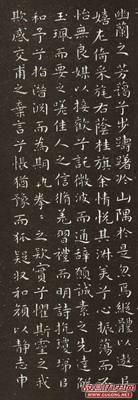 幽蘭之芳藹兮步踟躕於山隅於是忽焉縱體以遨以
嬉左倚采旄右蔭桂旗余情悅其淑美兮心振蕩而不
怡無良媒以接歡兮託微波而通辭願誠素之先達解
玉珮而要之羌佳人之信脩羌習禮而明詩抗瓊珶以
和予兮指潛淵而為期執拳〻之款實兮懼斯靈之我
欺感交甫之棄言兮悵猶豫而狐疑收和顏以靜志申